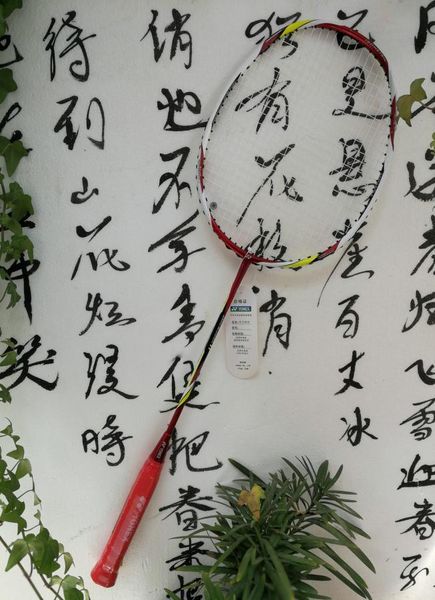 送春归飞雪迎春到
已是悬崖百丈冰
犹有花枝俏
俏也不争春只把春来报
待到山花烂漫时
中笑
合格证
YONEX
YONEX